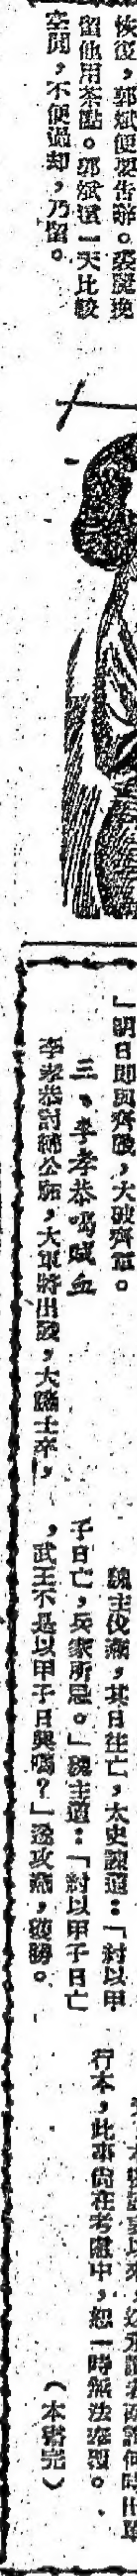 恢復，郭斌便要告辭。張麗挽
留他用茶點。郭斌這一天比較
空閒，不便過却，乃留。
」明日即與齊戰，大破齊軍。
三、李孝恭喝賊血
李孝恭討輔公祏，大軍將出發，大饗士卒，
魏主伐燕，其日往亡，太史諫道：「紂以甲
子日亡，兵家所忌。」魏主道：「紂以甲子日亡
，武王不是以甲子日興嗎？」遂攻燕，獲勝。
行本，此事尚在考慮中，恕一時無法奉報。
（本報完）